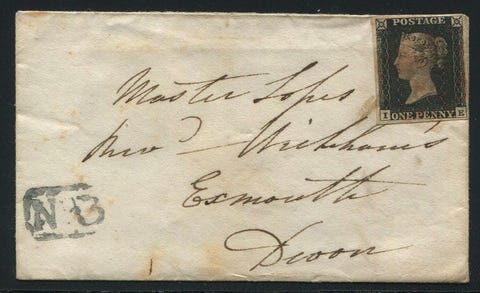 POSTAGE
I ONE PENNY E
Master Lopes
Revd Wickham's
Exmouth
Devon